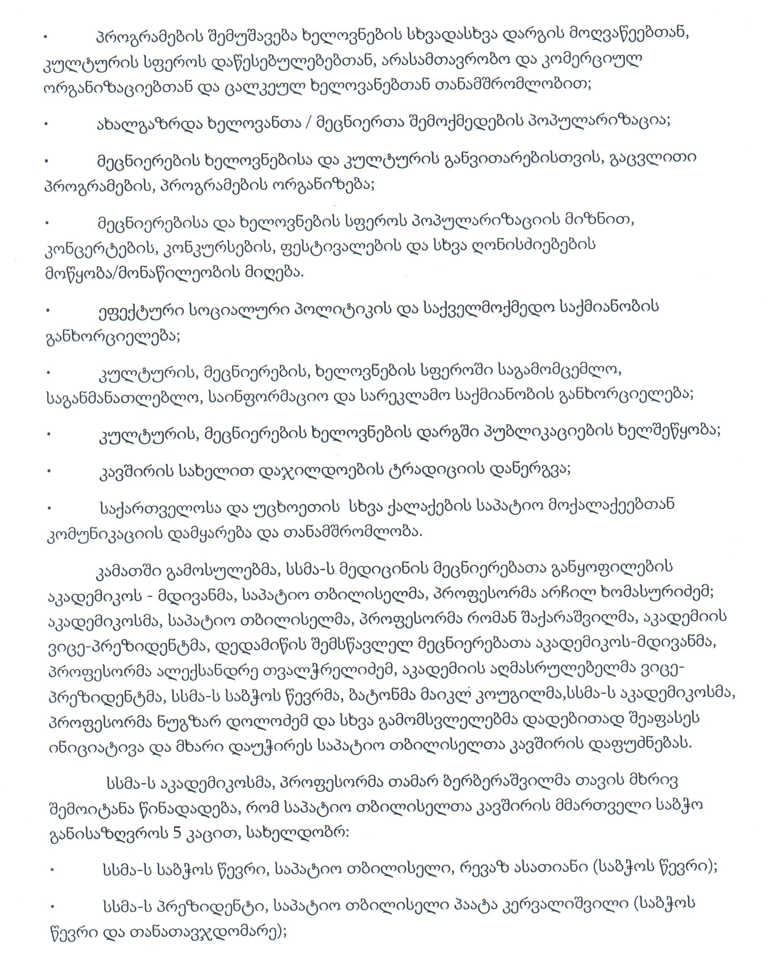 · პროგრამების შემუშავება ხელოვნების სხვადასხვა დარგის მოღვაწეებთან,
კულტურის სფეროს დაწესებულებებთან, არასამთავრობო და კომერციულ
ორგანიზაციებთან და ცალკეულ ხელოვანებთან თანამშრომლობით;
· ახალგაზრდა ხელოვანთა / მეცნიერთა შემოქმედების პოპულარიზაცია;
· მეცნიერების ხელოვნებისა და კულტურის განვითარებისთვის, გაცვლითი
პროგრამების, პროგრამების ორგანიზება;
· მეცნიერებისა და ხელოვნების სფეროს პოპულარიზაციის მიზნით,
კონცერტების, კონკურსების, ფესტივალების და სხვა ღონისძიებების
მოწყობა/მონაწილეობის მიღება.
· ეფექტური სოციალური პოლიტიკის და საქველმოქმედო საქმიანობის
განხორციელება;
· კულტურის, მეცნიერების, ხელოვნების სფეროში საგამომცემლო,
საგანმანათლებლო, საინფორმაციო და სარეკლამო საქმიანობის განხორციელება;
· კულტურის, მეცნიერების ხელოვნების დარგში პუბლიკაციების ხელშეწყობა;
· კავშირის სახელით დაჯილდოების ტრადიციის დანერგვა;
· საქართველოსა და უცხოეთის სხვა ქალაქების საპატიო მოქალაქეებთან
კომუნიკაციის დამყარება და თანამშრომლობა.
კამათში გამოსულებმა, სსმა-ს მედიცინის მეცნიერებათა განყოფილების
აკადემიკოს - მდივანმა, საპატიო თბილისელმა, პროფესორმა არჩილ ხომასურიძემ;
აკადემიკოსმა, საპატიო თბილისელმა, პროფესორმა რომან შაქარაშვილმა, აკადემიის
ვიცე-პრეზიდენტმა, დედამიწის შემსწავლელ მეცნიერებათა აკადემიკოს-მდივანმა,
პროფესორმა ალექსანდრე თვალჭრელიძემ, აკადემიის აღმასრულებელმა ვიცე-
პრეზიდენტმა, სსმა-ს საბჭოს წევრმა, ბატონმა მაიკლ კოუგილმა,სსმა-ს აკადემიკოსმა,
პროფესორმა ნუგზარ დოლიძემ და სხვა გამომსვლელებმა დადებითად შეაფასეს
ინიციატივა და მხარი დაუჭირეს საპატიო თბილისელთა კავშირის დაფუძნებას.
სსმა-ს აკადემიკოსმა, პროფესორმა თამარ ბერბერაშვილმა თავის მხრივ
შემოიტანა წინადადება, რომ საპატიო თბილისელთა კავშირის მმართველი საბჭო
განისაზღვროს 5 კაცით, სახელდობრ:
· სსმა-ს საბჭოს წევრი, საპატიო თბილისელი, რევაზ ასათიანი (საბჭოს წევრი);
· სსმა-ს პრეზიდენტი, საპატიო თბილისელი პაატა კერვალიშვილი (საბჭოს
წევრი და თანათავჯდომარე);